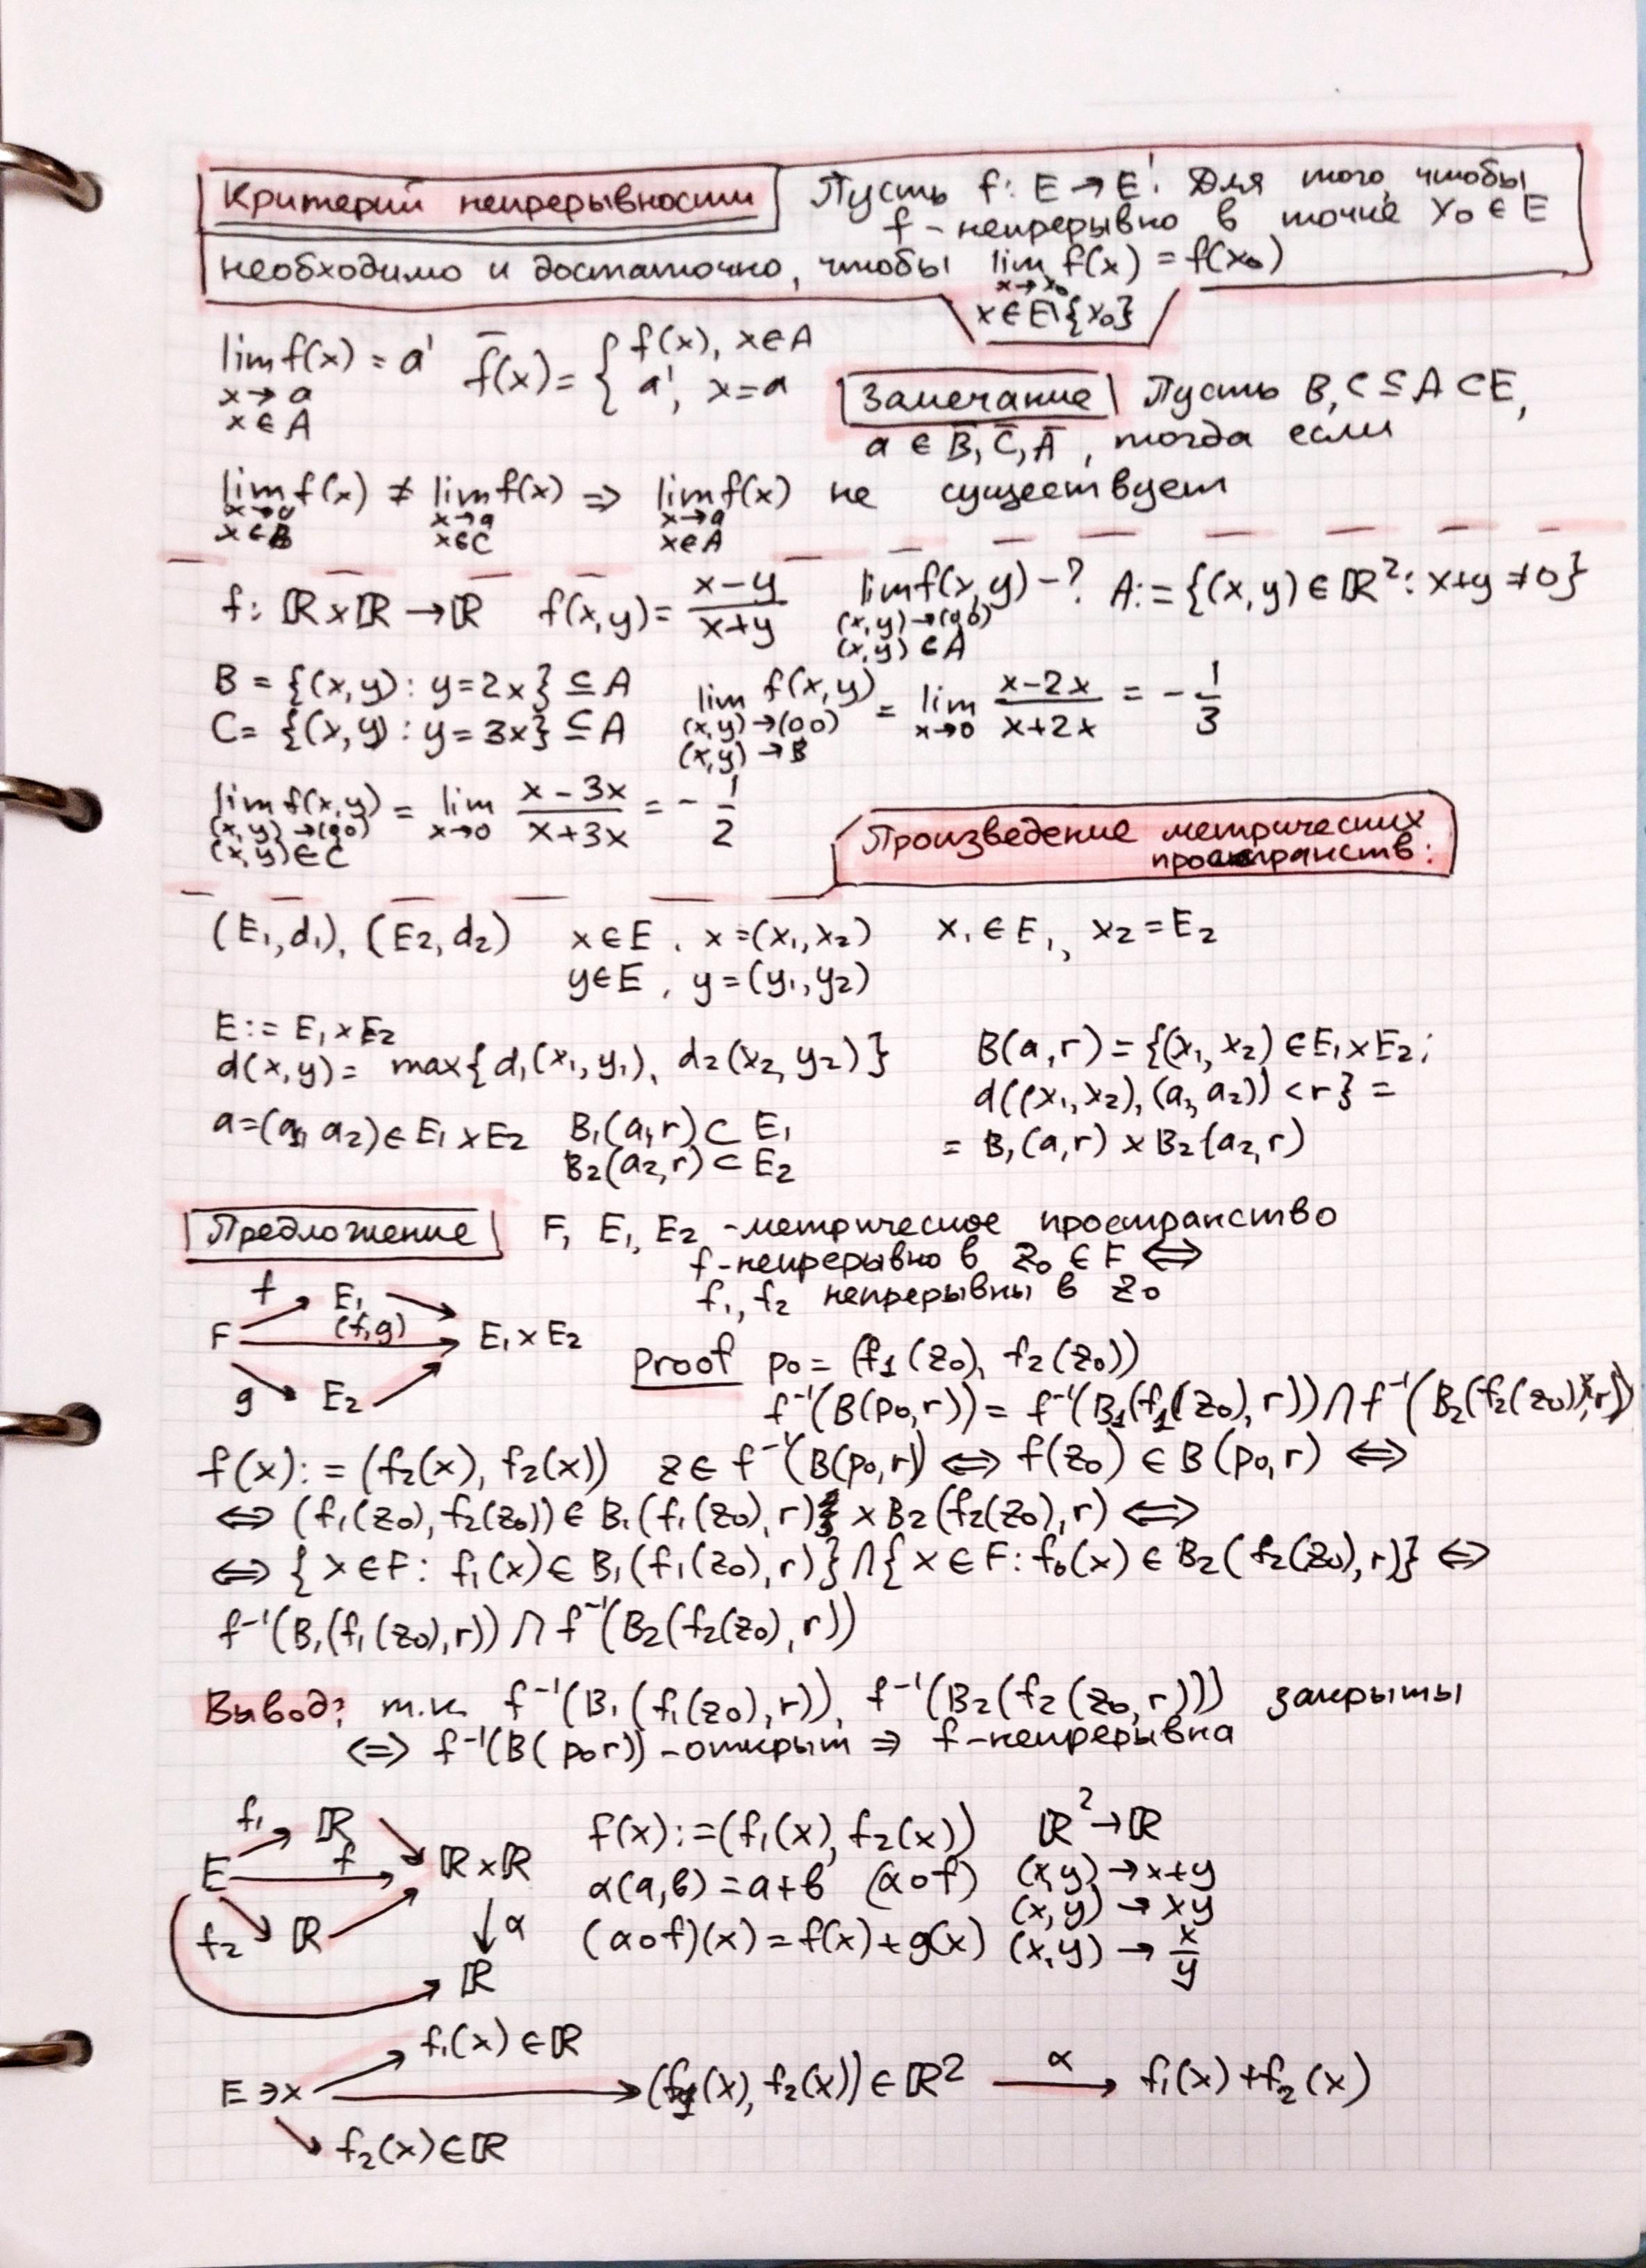 Критерий непрерывности
Пусть f: E → E'. Для того, чтобы
f - непрерывно в точке x₀ ∈ E
необходимо и достаточно, чтобы lim f(x) = f(x₀)
x→x₀
x∈E\{x₀}
lim f(x) = a' f̄(x) = { f(x), x∈A
x→a a', x=a
x∈A
Замечание Пусть B, C ⊆ A ⊂ E,
a ∈ B̄, C̄, Ā, тогда если
lim f(x) ≠ lim f(x) ⇒ lim f(x) не существует
x→a x→a x→a
x∈B x∈C x∈A
f: ℝ×ℝ→ℝ f(x,y) = (x-y)/(x+y) lim f(x,y) - ? A := {(x,y)∈ℝ²: x+y≠0}
(x,y)→(0,0)
(x,y)∈A
B = {(x,y): y=2x} ⊆ A lim f(x,y) = lim (x-2x)/(x+2x) = -1/3
C = {(x,y): y=3x} ⊆ A (x,y)→(00) x→0
(x,y)→B
lim f(x,y) = lim (x-3x)/(x+3x) = -1/2
(x,y)→(00) x→0
(x,y)∈C
Произведение метрических
пространств:
(E₁,d₁), (E₂,d₂) x∈E, x=(x₁,x₂) x₁∈E₁, x₂=E₂
y∈E, y=(y₁,y₂)
E := E₁×E₂
d(x,y) = max{d₁(x₁,y₁), d₂(x₂,y₂)}
a=(a₁,a₂)∈E₁×E₂ B₁(a₁,r)⊂E₁
B₂(a₂,r)⊂E₂
B(a,r) = {(x₁,x₂)∈E₁×E₂;
d((x₁,x₂),(a₁,a₂))<r} =
= B₁(a₁,r)×B₂(a₂,r)
Предложение F, E₁, E₂ - метрическое пространство
f-непрерывно в z₀∈F ⇔
f₁, f₂ непрерывны в z₀
f E₁
F (f,g) E₁×E₂
g E₂
proof p₀ = (f₁(z₀), f₂(z₀))
f⁻¹(B(p₀,r)) = f⁻¹(B₁(f₁(z₀),r))∩f⁻¹(B₂(f₂(z₀),r))
f(x) := (f₂(x), f₂(x)) z∈f⁻¹(B(p₀,r)) ⇔ f(z₀)∈B(p₀,r) ⇔
⇔ (f₁(z₀),f₂(z₀))∈B₁(f₁(z₀),r)×B₂(f₂(z₀),r) ⇔
⇔ {x∈F: f₁(x)∈B₁(f₁(z₀),r)}∩{x∈F: f₆(x)∈B₂(f₂(z₀),r)} ⇔
f⁻¹(B₁(f₁(z₀),r))∩f⁻¹(B₂(f₂(z₀),r))
Вывод: т.к. f⁻¹(B₁(f₁(z₀),r)), f⁻¹(B₂(f₂(z₀,r))) закрыты
⇔ f⁻¹(B(p₀r)) - открыт ⇒ f-непрерывна
f₁ ℝ
E f ℝ×ℝ
f₂ ℝ α
ℝ
f(x) := (f₁(x), f₂(x)) ℝ²→ℝ
α(a,b) = a+b (α∘f) (x,y)→x+y
(x,y)→xy
(α∘f)(x) = f(x)+g(x) (x,y)→x/y
f₁(x)∈ℝ
E∋x → (f₁(x), f₂(x))∈ℝ² →α f₁(x)+f₂(x)
f₂(x)∈ℝ